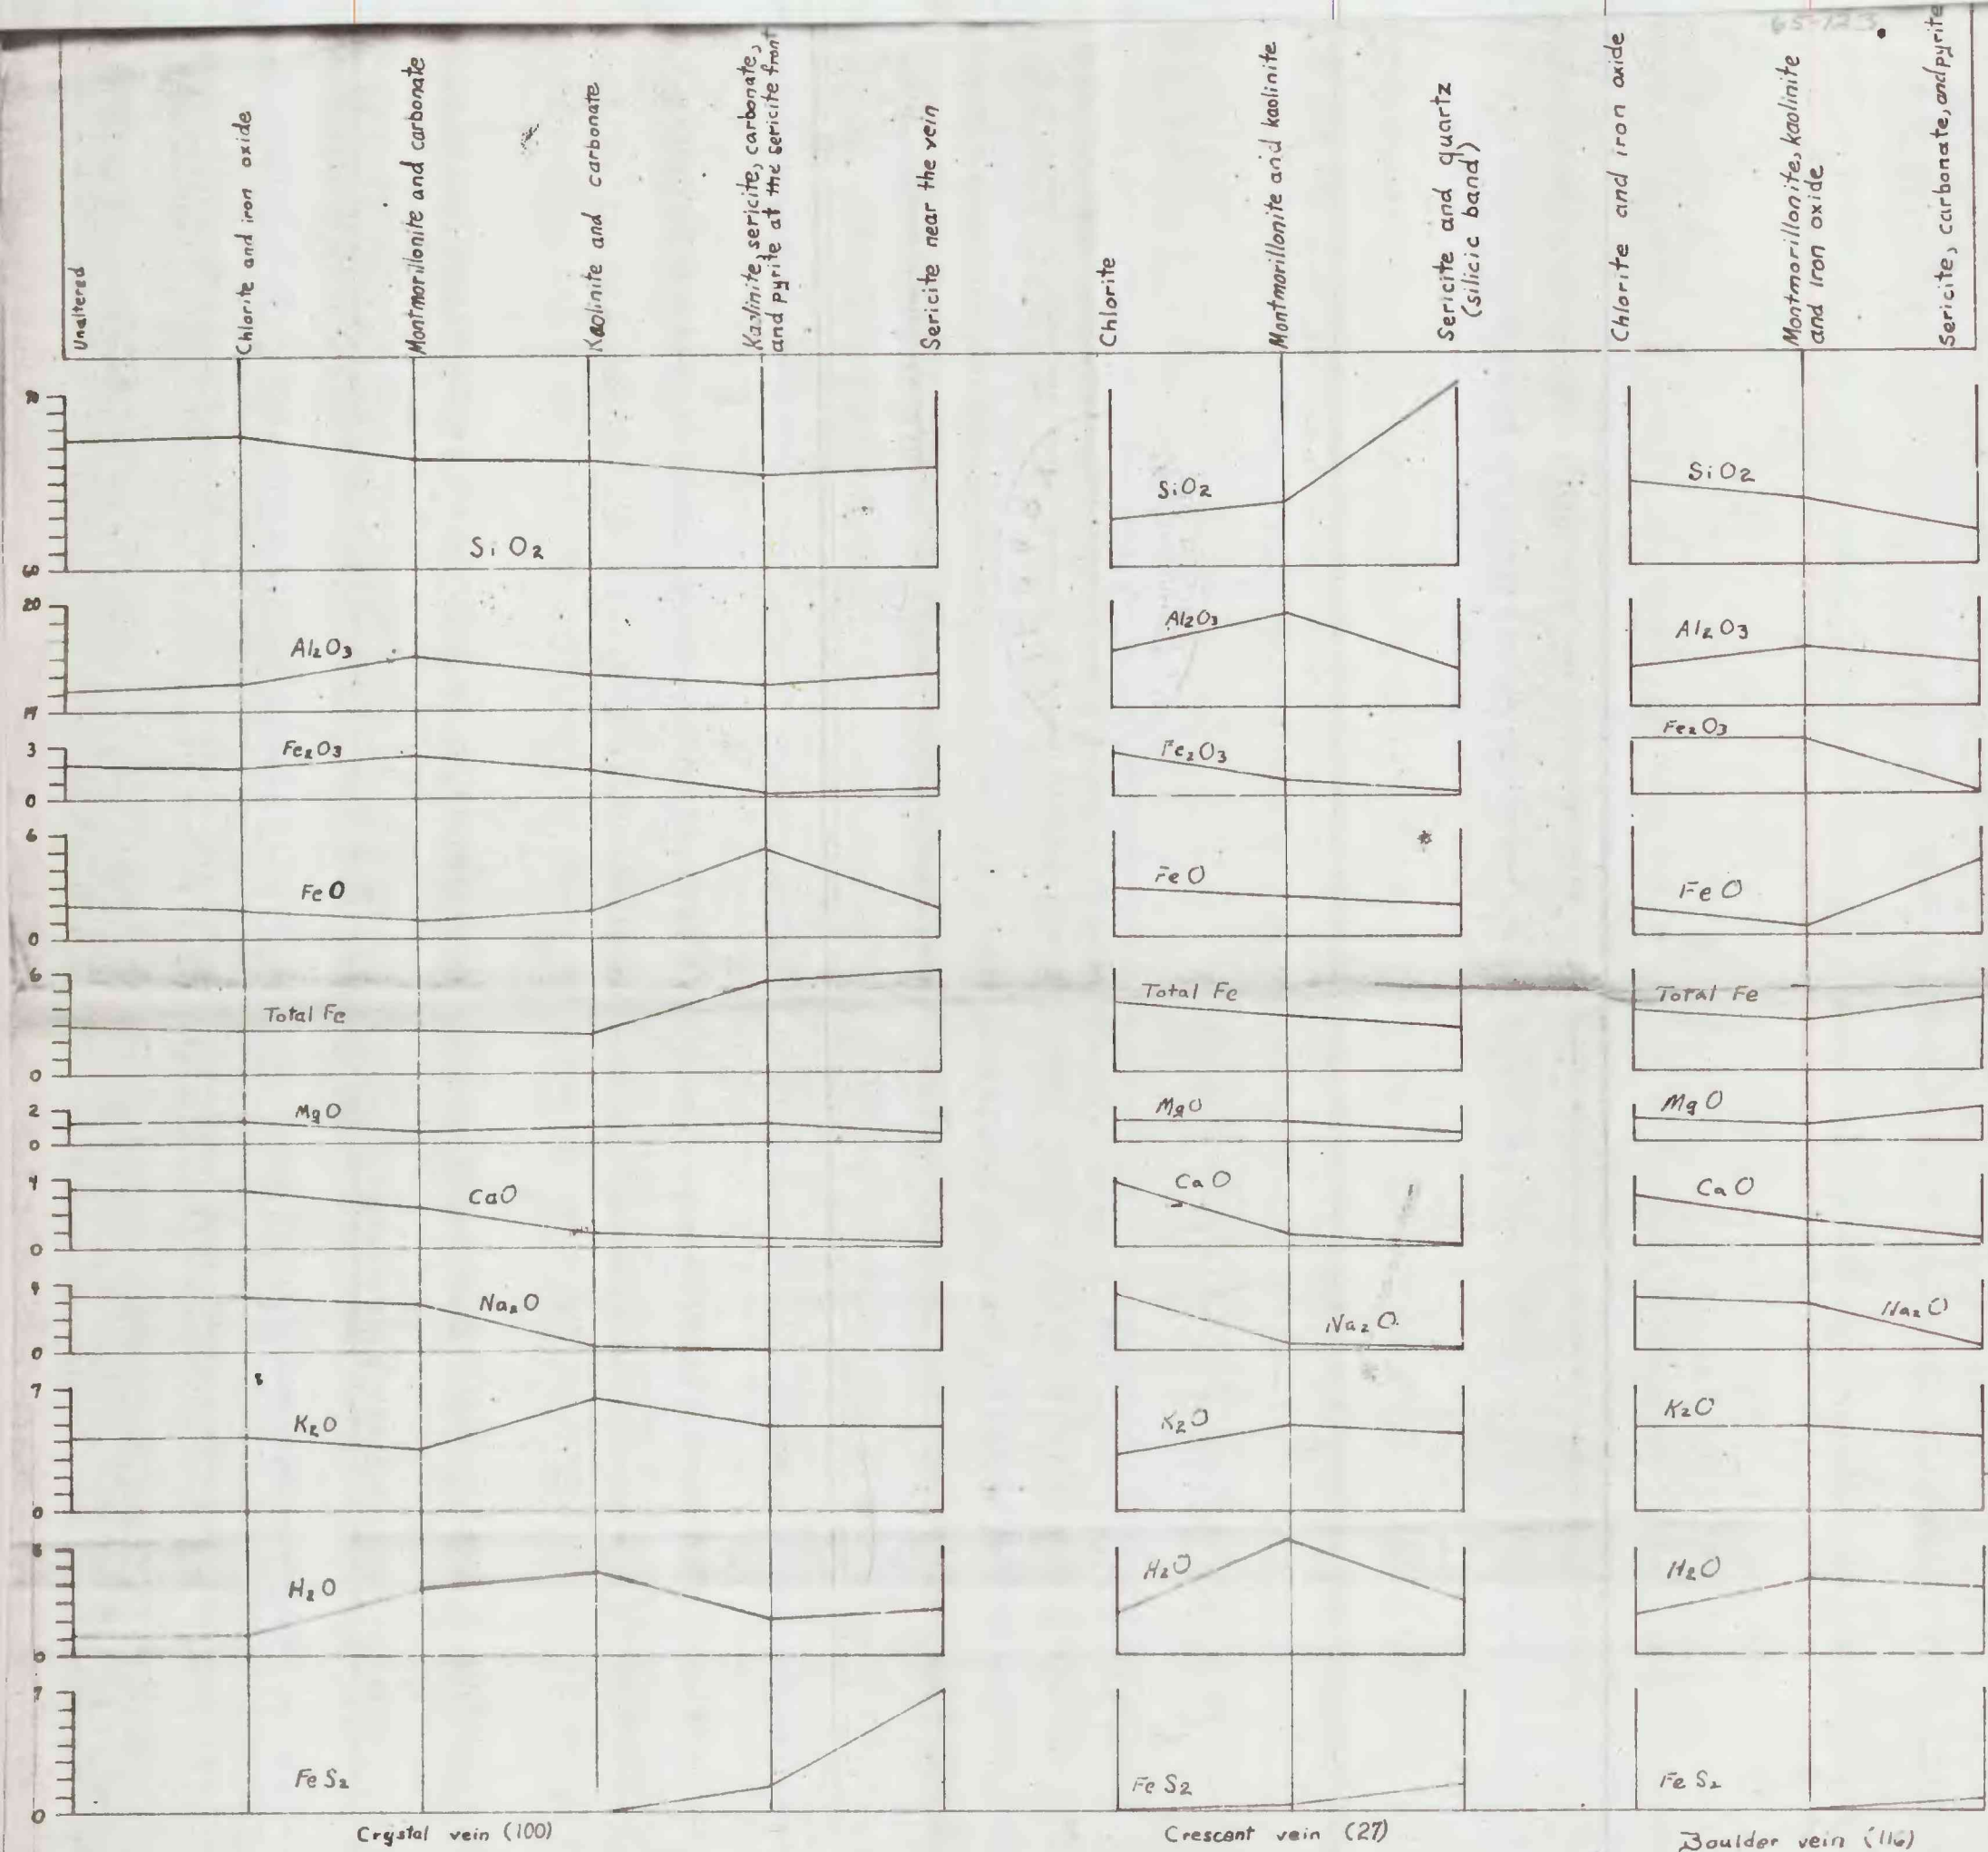 65-123
Unaltered
Chlorite and iron oxide
Montmorillonite and carbonate
Kaolinite and carbonate
Kaolinite, sericite, carbonate,
and pyrite at the sericite front
Sericite near the vein
Chlorite
Montmorillonite and kaolinite
Sericite and quartz
(silicic band)
Chlorite and iron oxide
Montmorillonite, kaolinite
and iron oxide
Sericite, carbonate, and pyrite
70
60
SiO2
SiO2
SiO2
20
Al2O3
Al2O3
Al2O3
3
0
Fe2O3
Fe2O3
Fe2O3
6
0
FeO
FeO
*
FeO
6
0
Total Fe
Total Fe
Total Fe
2
0
MgO
MgO
MgO
0
CaO
CaO
CaO
0
Na2O
Na2O
Na2O
7
0
K2O
K2O
K2O
0
H2O
H2O
H2O
7
0
FeS2
FeS2
FeS2
Crystal vein (100)
Crescent vein (27)
Boulder vein (116)